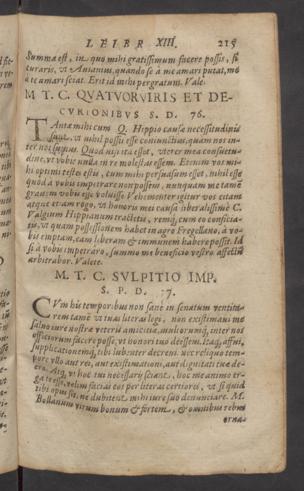 LEIBR XIII. 215
Summa est, in quo mihi gratissimum facere possis, si
curaris, vt Avianius, quando se a me amari putat, me
a te amari sciat. Erit id mihi pergratum. Vale.
M T. C. QVATVORVIRIS ET DE-
CVRIONIBVS S. D. 76.
TAntæ mihi cum Q. Hippio causæ necessitudinis
sunt, vt nihil possit esse coniunctius, quam nos in-
ter nos sumus. Quod nisi ita esset, vterer mea consuetu-
dine, vt vobis nulla in re molestus essem. Etenim vos mi-
hi optimi testes estis, cum mihi persuasum esset, nihil esse
quod a vobis impetrare non possem, nunquam me tamen
grauem vobis esse voluisse. Vehementer igitur vos etiam
atque etiam rogo, vt honoris mei causa liberalissime C.
Valgium Hippianum tractetis, remq́, cum eo conficia-
tis, vt quam possessionem habet in agro Fregellano, a vo-
bis emptam, eam liberam & immunem habere possit. Id
si a vobis impetraro, summo me beneficio vestro affectum
arbitrabor. Valete.
M. T. C. SVLPITIO IMP.
S. P. D. 77.
CVm his temporibus non sane in senatum ventita-
rem tamen vt tuas literas legi, non existimaui me
saluo iure nostræ veteris amicitiæ, multorumq́, inter nos
officiorum facere posse, vt honori tuo deessem. Itaq́, affui,
supplicationemq́, tibi lubenter decreui nec reliquo tem-
pore vlla aut rei, aut existimationi, aut dignitati tuæ de-
ero. Atq́, vt hoc tui necessarij sciant, hoc me animo er-
ga te esse, velim facias eos per literas certiores, vt si quid
tibi opus sit, ne dubitent mihi iure suo denunciare. M.
Bollanum virum bonum & fortem, & omnibus rebus
orna-